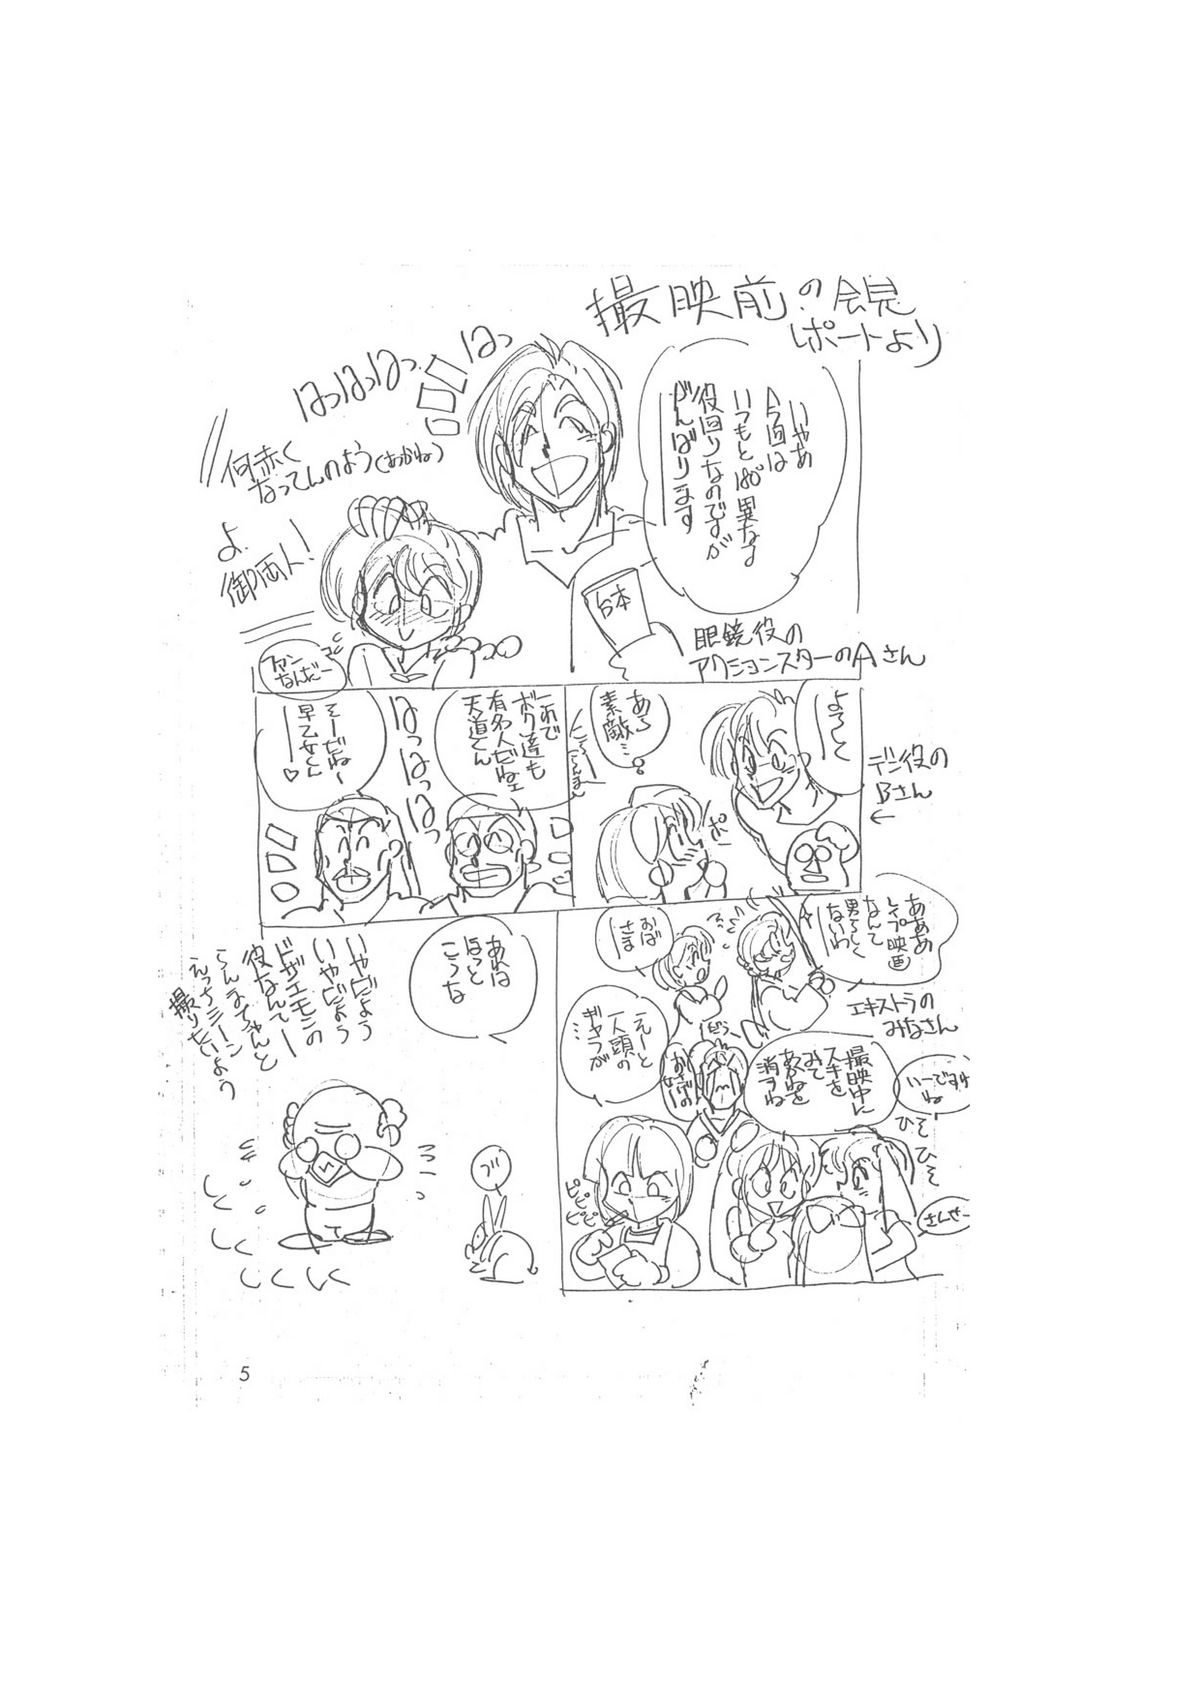 撮映前の会見
レポートより
いやあ
今回は
いつもと180°異なる
役回りなのですが
がんばります
はっはっはっはっ
何赤く
なってんのよう(あかね)
よ
御両人!
台本
眼鏡役の
アクションスターのAさん
ファン
なんだー
よろしく
デン役の
Bさん
あら
素敵…
ポ
これで
ボク達も
有名人だねェ
天道くん
はっはっはっ
そーだねー
早乙女くん
あああ
レイプ映画
なんて
男らしく
ないわ
おば
さま
エキストラの
みなさん
えーと
一人頭の
ギャラが
…
撮映中に
スキを
みて
あかねを
消すね
いーですわ
ね
ひそひそ
さんせー
ピピピピピ
あれは
ほっと
こうな
いやだよう
いやだよう
ドザエモンの
役なんてー
らんまちゃんと
えっちシーン
撮りたいよう
5